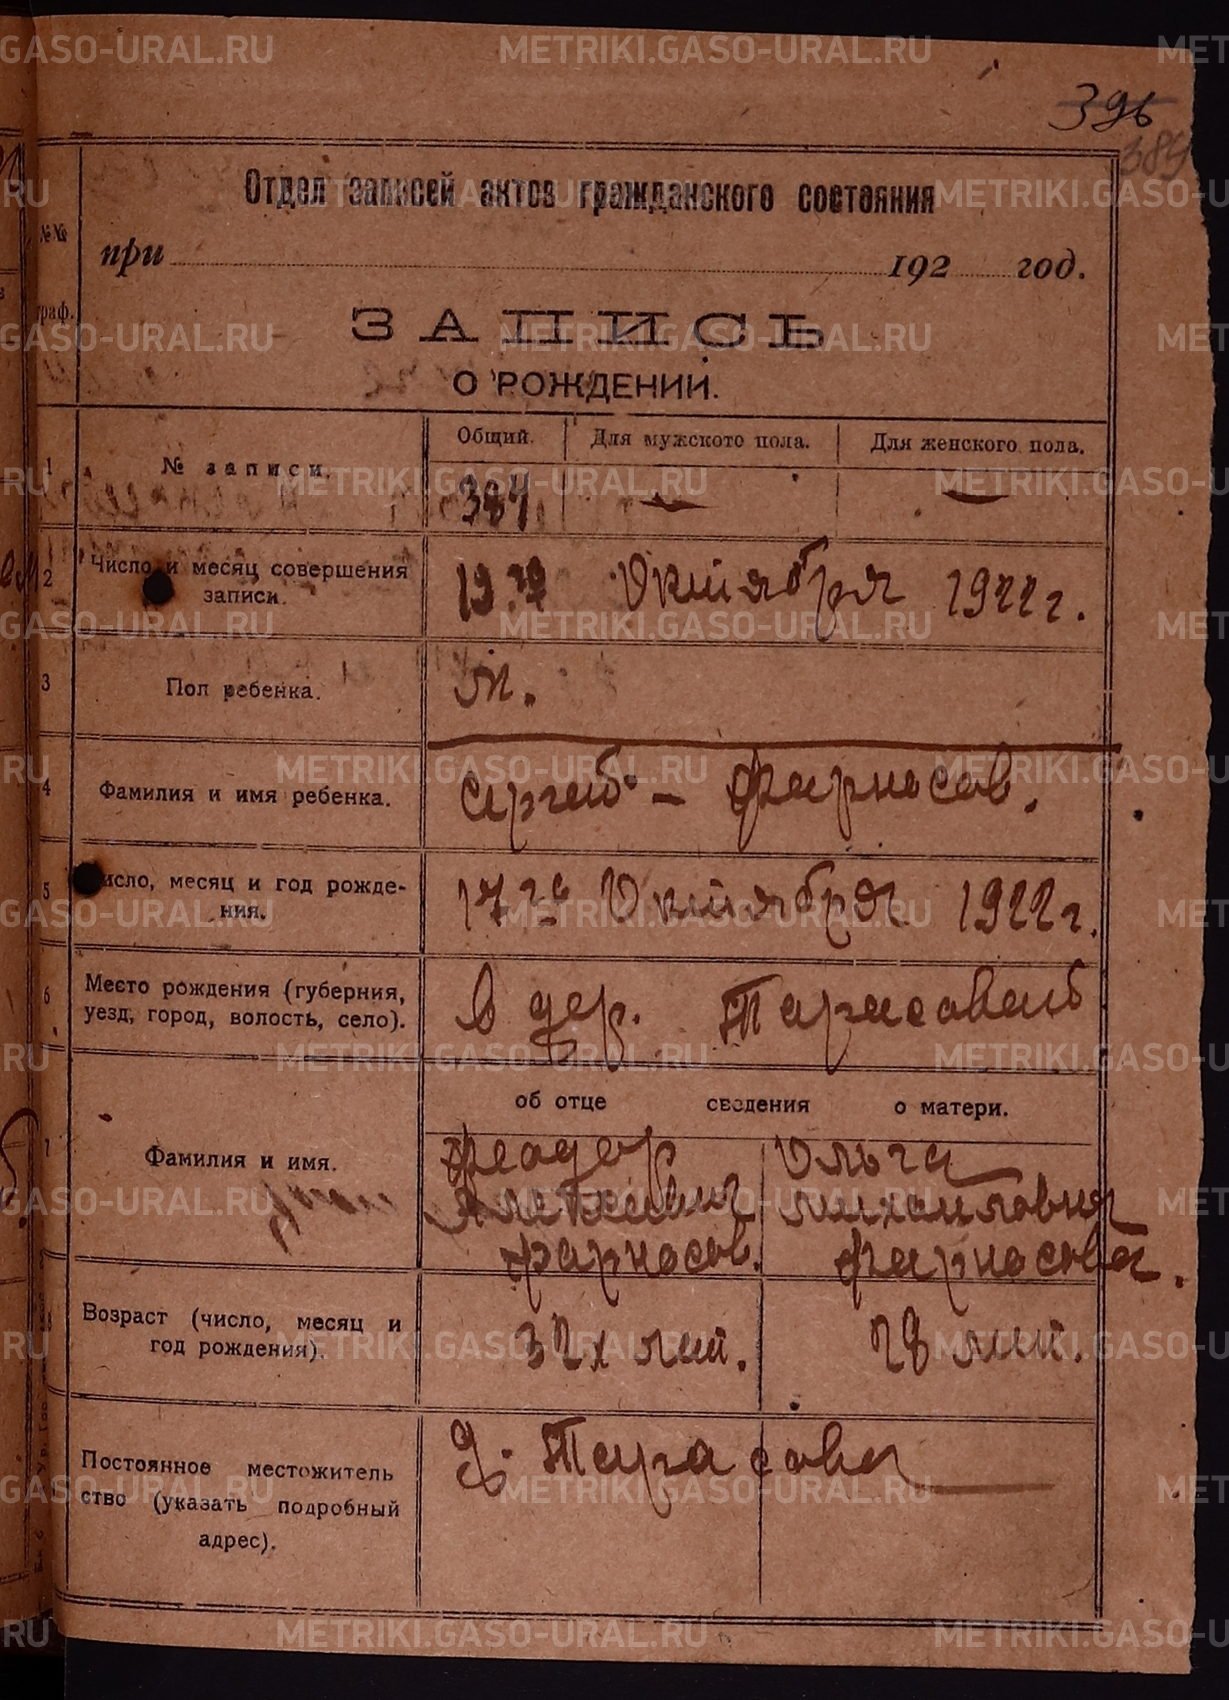 396
389
Отдел записей актов гражданского состояния
№№
граф.
при 192 год.
ЗАПИСЬ
О РОЖДЕНИИ.
1 № записи. Общий. Для мужского пола. Для женского пола.
384. — —
2 Число и месяц совершения записи.
19. Октября 1922 г.
3 Пол ребенка.
м.
4 Фамилия и имя ребенка.
Сергей - Фарносов.
5 Число, месяц и год рожде-
ния.
17го Октября 1922 г.
6 Место рождения (губерния,
уезд, город, волость, село).
В дер. Тарасовой
об отце сведения о матери.
7 Фамилия и имя.
Феодор Ольга
Михаиловна
Фарносов. Фарносова.
8 Возраст (число, месяц и
год рождения).
32х лет. 28 лет.
Постоянное местожитель
ство (указать подробный
адрес).
Д. Тарасова
METRIKI.GASO-URAL.RU